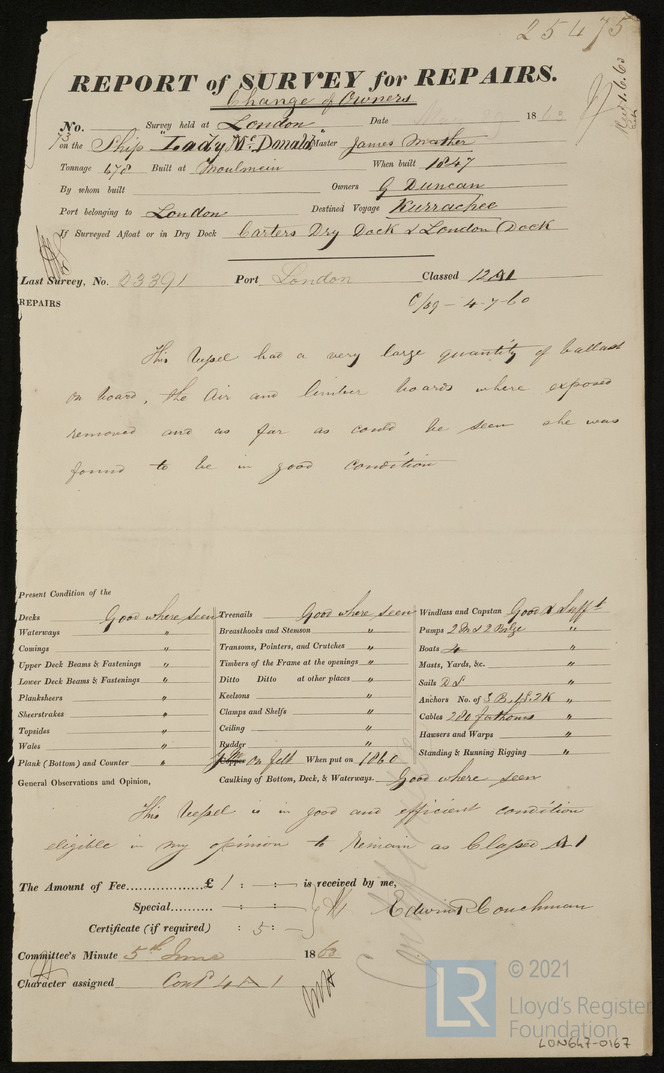 25475
REPORT of SURVEY for REPAIRS.
Change of Owners
No. 73 Survey held at London Date 1860
Recd 1.6.60
on the Ship "Lady McDonald" Master James Mather
Tonnage 678 Built at Moulmein When built 1847
By whom built Owners G Duncan
Port belonging to London Destined Voyage Kurrachee
If Surveyed Afloat or in Dry Dock Carters Dry Dock & London Dock
Last Survey, No. 23391 Port London Classed 12A1
C/59 - 4-7-60
REPAIRS
This Vessel had a very large quantity of ballast
on board, the Air and limber boards where exposed
removed and as far as could be seen she was
found to be in good condition
Present Condition of the
Decks Good where seen Treenails Good where seen Windlass and Capstan Good & Sufft
Waterways " Breasthooks and Stemson " Pumps 2 Mn & 2 Bilge "
Comings " Transoms, Pointers, and Crutches " Boats 4 "
Upper Deck Beams & Fastenings " Timbers of the Frame at the openings " Masts, Yards, &c. "
Lower Deck Beams & Fastenings " Ditto Ditto at other places " Sails D S "
Planksheers " Keelsons " Anchors No. of 3 B, 1 S, 2 K "
Sheerstrakes " Clamps and Shelfs " Cables 280 fathoms "
Topsides " Ceiling " Hawsers and Warps "
Wales " Rudder " Standing & Running Rigging "
Plank (Bottom) and Counter " Copper Y M on felt When put on 1860
General Observations and Opinion, Caulking of Bottom, Deck, & Waterways. Good where seen
This Vessel is in good and efficient condition
eligible in my opinion to remain as Classed A1
The Amount of Fee £ 1 : - : - is received by me,
Special - : - : -
Edwin Couchman
Certificate (if required) : 5 : -
Committee's Minute 5th June 1860
Character assigned Contd A 1
LR
© 2021
Lloyd's Register
Foundation
LON647-0167